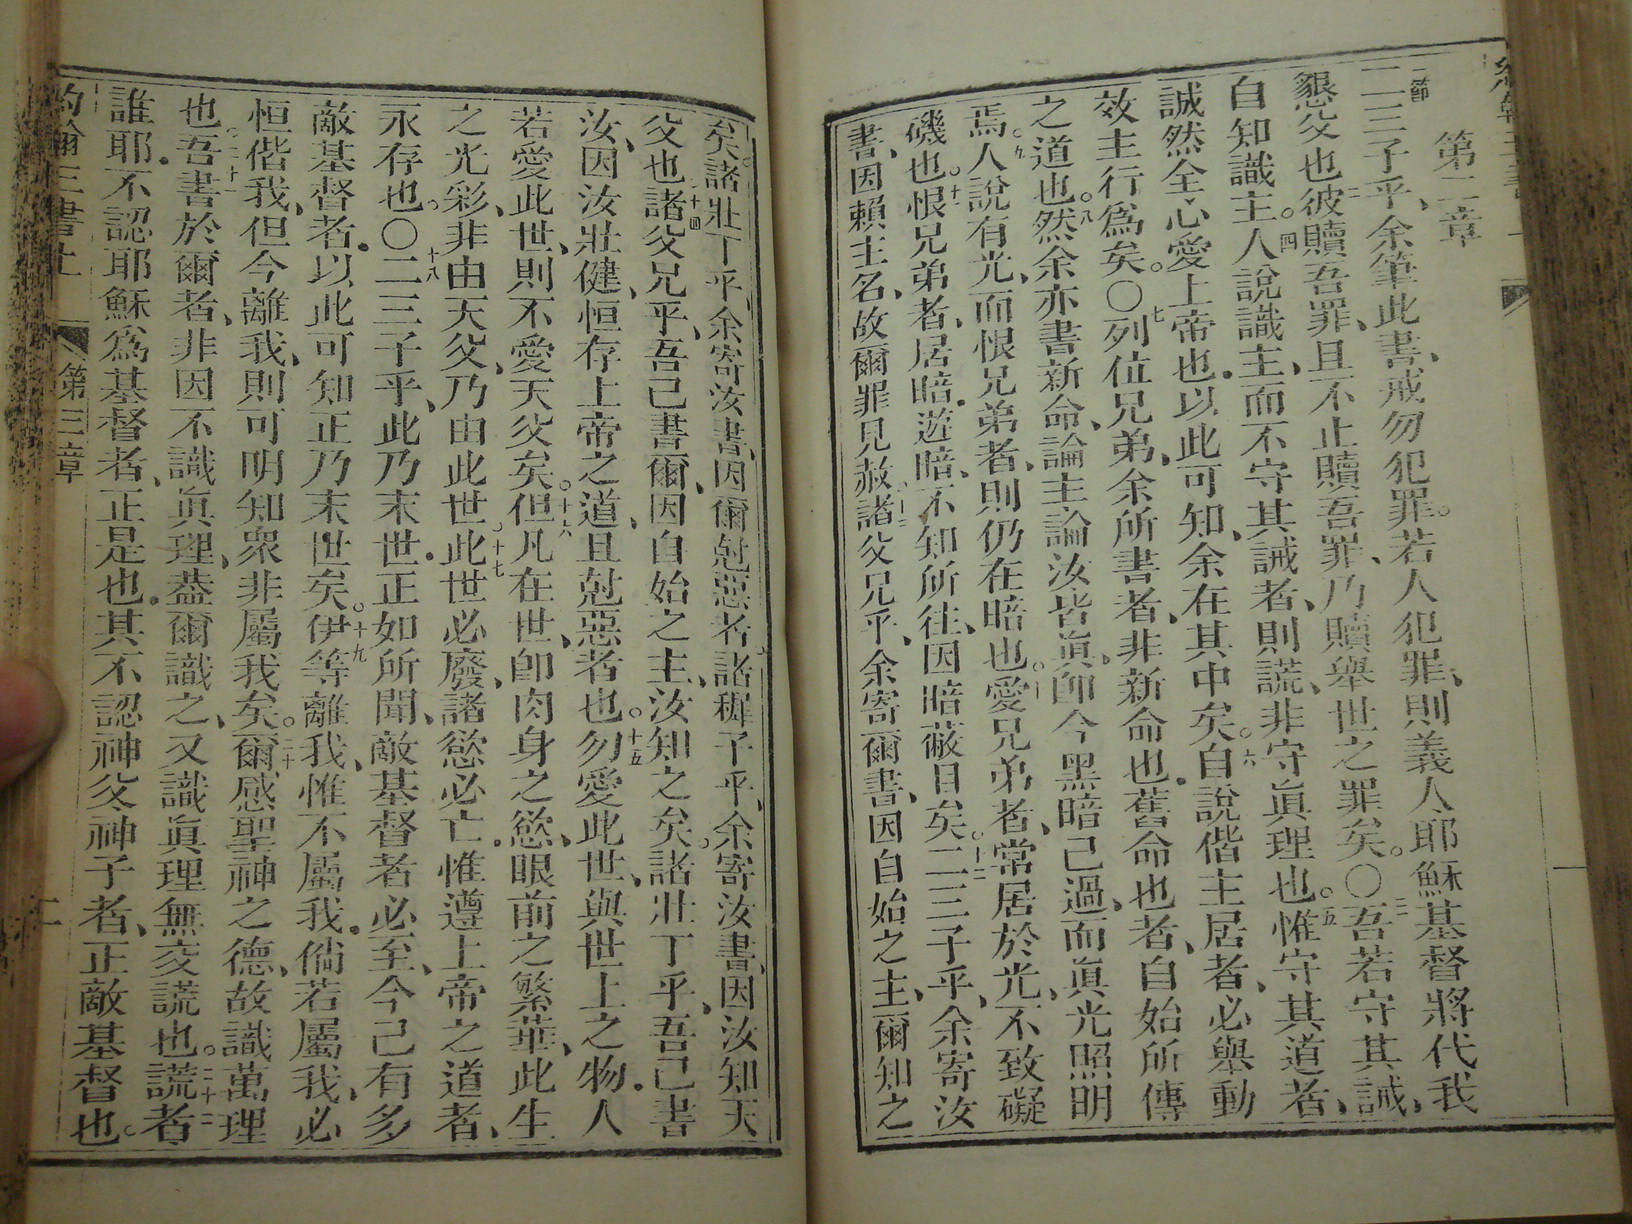 第二章
一節二三子乎、余筆此書、戒勿犯罪。若人犯罪、則義人耶穌基督將代我
懇父也二彼贖吾罪、且不止贖吾罪、乃贖舉世之罪矣。〇三吾若守其誡、
自知識主。四人說識主、而不守其誡者、則謊、非守眞理也。五惟守其道者、
誠然全心愛上帝也。以此可知、余在其中矣。六自說偕主居者、必舉動
效主行爲矣。〇七列位兄弟、余所書者、非新命也。舊命也者、自始所傳
之道也。八然余亦書新命、論主論汝皆眞、卽今黑暗已過、而眞光照明
焉。九人說有光、而恨兄弟者、則仍在暗也。十愛兄弟者、常居於光、不致礙
磯也。十一恨兄弟者、居暗、遊暗、不知所往、因暗蔽目矣。十二二三子乎、余寄汝
書、因賴主名、故爾罪見赦、十三諸父兄乎、余寄爾書、因自始之主、爾知之
矣。諸壯丁乎、余寄汝書、因爾尅惡者、諸穉子乎、余寄汝書、因汝知天
父也十四諸父兄乎、吾已書爾、因自始之主、汝知之矣。諸壯丁乎、吾已書
汝、因汝壯健、恒存上帝之道、且尅惡者也。十五勿愛此世、與世上之物。人
若愛此世、則不愛天父矣。十六但凡在世、卽肉身之慾、眼前之繁華、此生
之光彩、非由天父、乃由此世、十七此世必廢、諸慾必亡。惟遵上帝之道者、
永存也。〇十八二三子乎、此乃末世。正如所聞、敵基督者必至、今已有多
敵基督者。以此可知正乃末世矣。十九伊等離我、惟不屬我。倘若屬我、必
恒偕我、但今離我、則可明知衆非屬我矣。二十爾感聖神之德、故識萬理
也。二十一吾書於爾者、非因不識眞理、蓋爾識之、又識眞理無交謊也。二十二謊者
誰耶。不認耶穌爲基督者、正是也。其不認神父神子者、正敵基督也。
約翰上書上 第三章 二